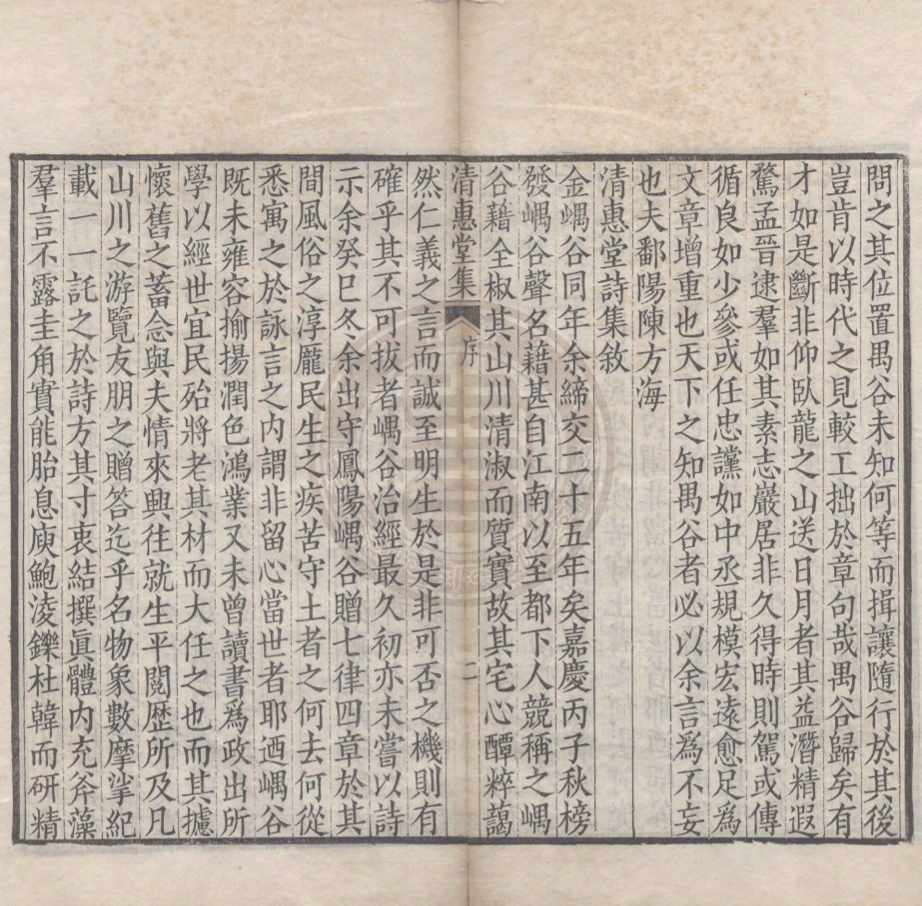 問之其位置禺谷未知何等而揖讓隨行於其後
豈肯以時代之見較工拙於章句哉禺谷歸矣有
才如是斷非仰臥龍之山送日月者其益潛精遐
騖孟晉逮羣如其素志巖居非久得時則駕或傳
循良如少參或任忠讜如中丞規模宏遠愈足為
文章增重也天下之知禺谷者必以余言爲不妄
也夫鄱陽陳方海
清惠堂詩集敘
金嵎谷同年余締交二十五年矣嘉慶丙子秋榜
發嵎谷聲名藉甚自江南以至都下人競稱之嵎
谷籍全椒其山川清淑而質實故其宅心醰粹藹
清惠堂集
序
二
然仁義之言而誠至明生於是非可否之機則有
確乎其不可拔者嵎谷治經最久初亦未嘗以詩
示余癸巳冬余出守鳳陽嵎谷贈七律四章於其
間風俗之淳龐民生之疾苦守土者之何去何從
悉寓之於詠言之內謂非留心當世者耶迺嵎谷
既未雍容揄揚潤色鴻業又未曾讀書爲政出所
學以經世宜民殆將老其材而大任之也而其攄
懷舊之蓄念與夫情來興往就生平閱歷所及凡
山川之游覽友朋之贈答迄乎名物象數摩挲紀
載一一託之於詩方其寸衷結撰眞體內充斧藻
羣言不露圭角實能胎息庾鮑淩鑠杜韓而研精